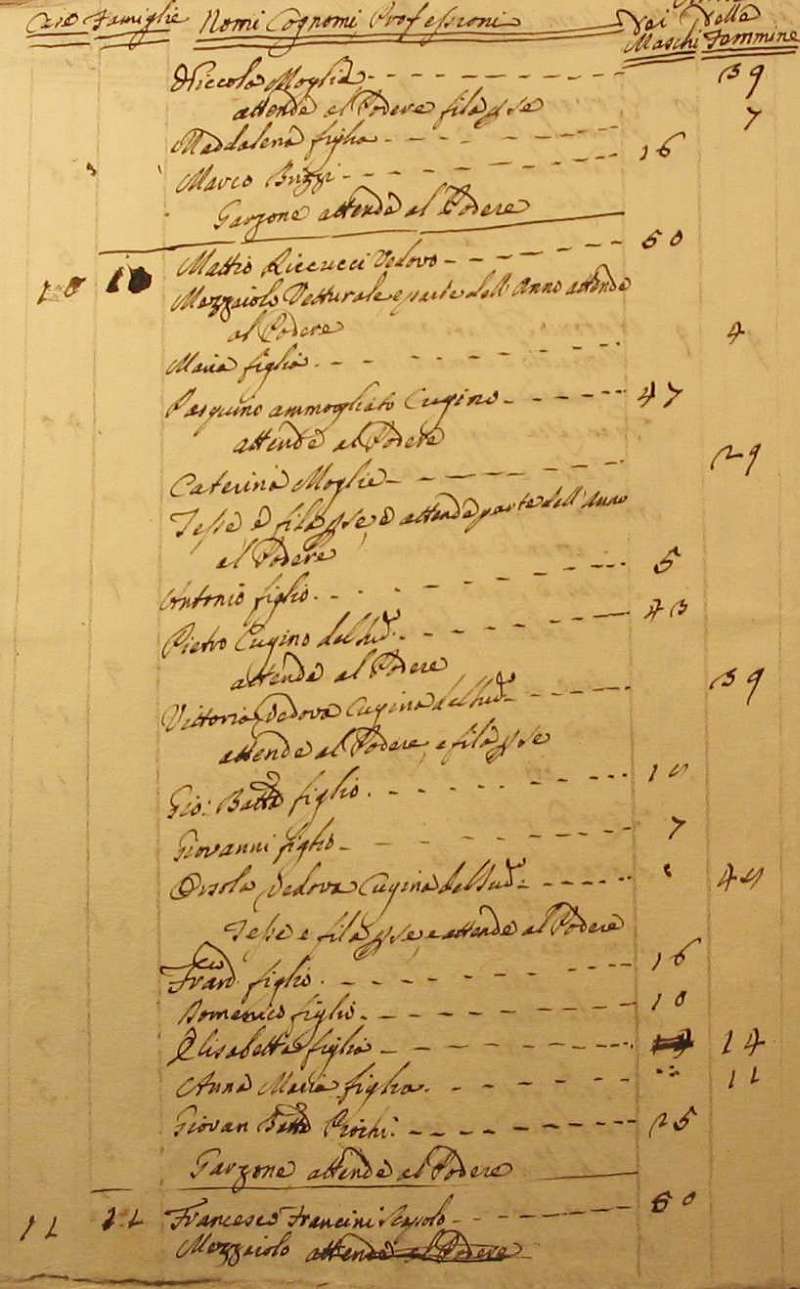 Case Famiglie Nomi Cognomi, Professioni dei Maschi della Femmine
Niccola Moglie 39
attende al Podere fila &se
Maddalena figlia 7
Marco Buzzi 16
Garzone attende al Podere
10 10 Mattio Riccucci Vedovo 50
Mezzaiolo Vetturale e parte dell'Anno attende
al Podere
Maria figlia 4
Pasquino ammogliato Cugino 47
attende al Podere
Caterina Moglie 29
Tesse e fila &se, e attende parte dell'Anno
al Podere
Antonio figlio 5
Pietro Cugino del Sud.o 43
attende al Podere
Vittoria Vedova Cugina del Sud.o 39
attende al Podere, e fila &se
Gio: Batta figlio 10
Giovanni figlio 7
Orsola Vedova Cugina del Sud.o 49
Tesse e fila &se, e attende al Podere
Franco figlio 16
Domenico figlio 10
Elisabetta figlia 14
Anna Maria figlia 11
Giovan Batta 25
Garzone attende al Podere
11 11 Francesco Francini Scapolo 60
Mezzaiolo attende al Podere